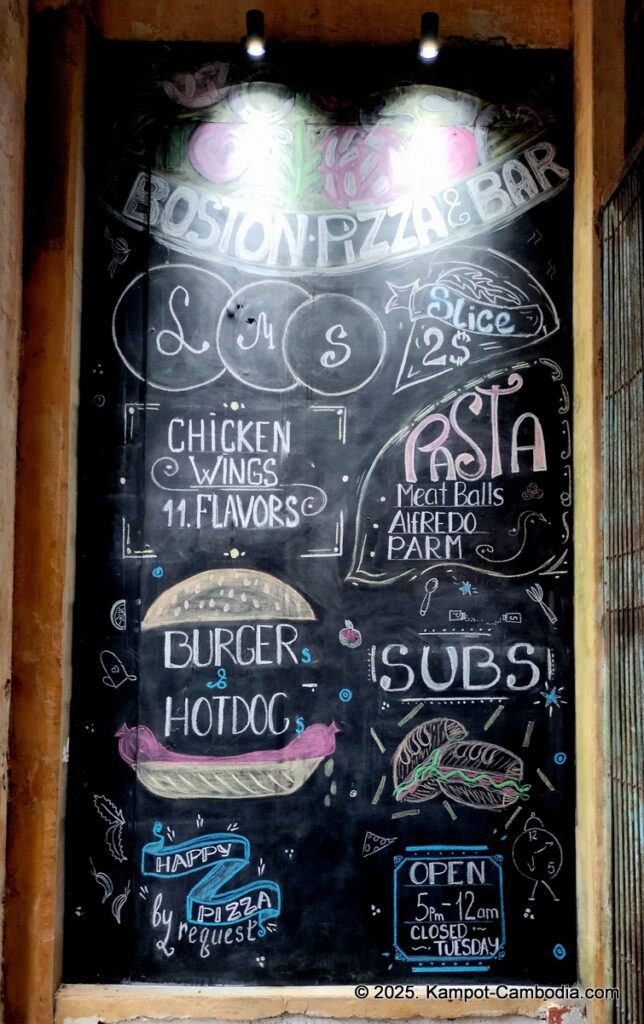 BOSTON·PIZZA & BAR
L M S
SLICE
2$
CHICKEN
WINGS
11. FLAVORS
PASTA
Meat Balls
AlFREDO
PARM
BURGERs
&
HOTDOGs
SUBS
HAPPY
PIZZA
by request
OPEN
5pm-12am
CLOSED
~ TUESDAY
© 2025. Kampot-Cambodia.com